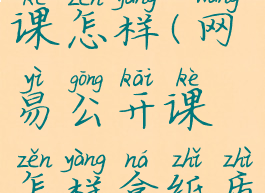 kè zěn yàng wǎng
课怎样(网
yì gōng kāi kè
易公开课
zěn yàng ná zhǐ zhì
怎样拿纸质